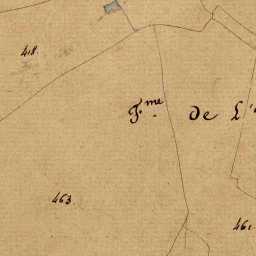 418.
Fme. De L'
463.
461